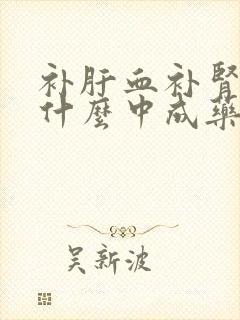 补肝血补腎
什麼中成藥
吴新波